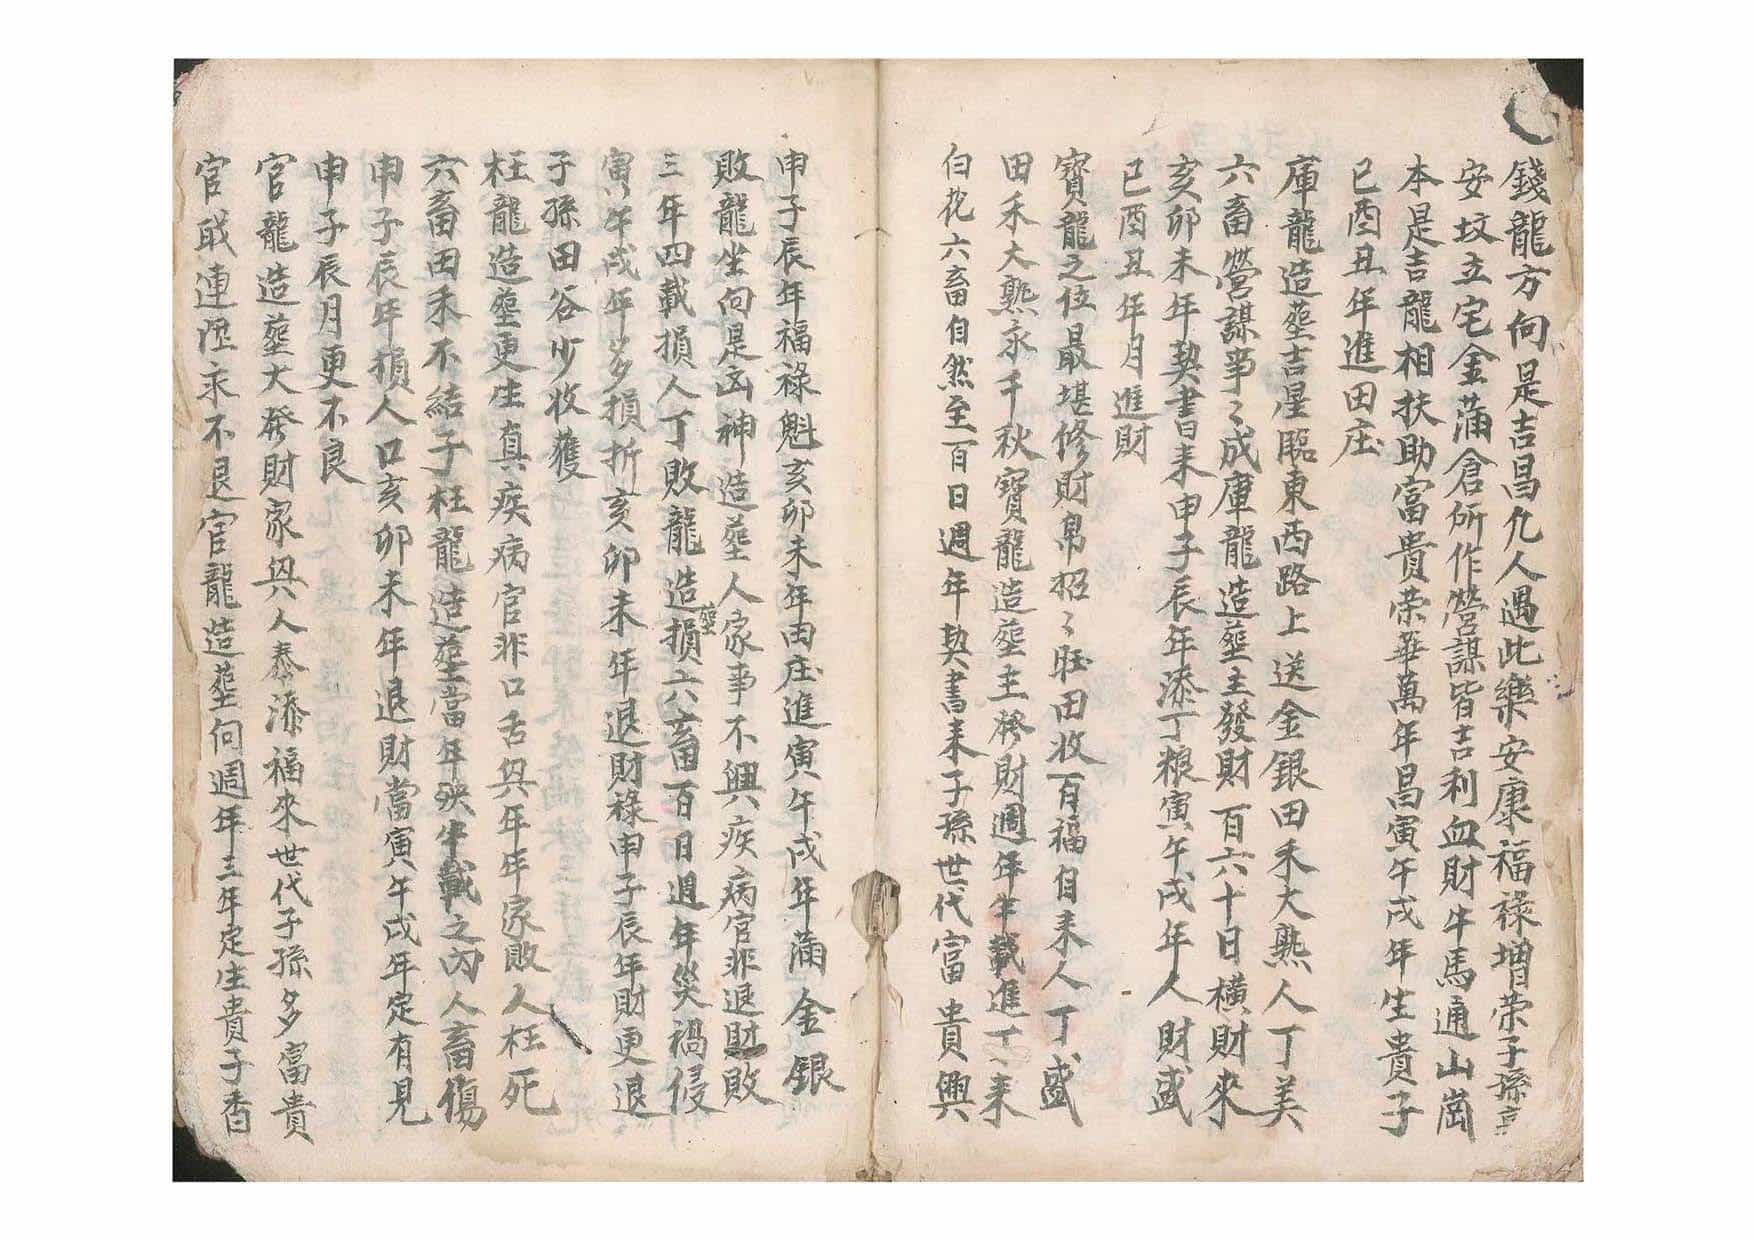 錢龍方向是吉昌凢人遇此樂安康福禄增荣子孫
安坟立宅金滿倉所作營謀皆吉利血財牛馬通山崗
本是吉龍相扶助富貴荣華萬年昌寅午戌年生貴子
巳酉丑年進田庄
庫龍造塟吉星臨東西路上送金銀田禾大熟人丁美
六畜營謀事〻成庫龍造塟主發財百六十日横財來
亥卯未年契書来申子辰年添丁粮寅午戌年人財盛
巳酉丑年月進財
寶龍之位最堪修財帛招〻旺田收百福自来人丁盛
田禾大熟永千秋寶龍造塟主發財週年半載進丁来
白花六畜自然至一百日週年契書来子孫世代富貴興
申子辰年福禄魁亥卯未年田庄進寅午戌年滿金銀
敗龍坐向是凶神造塟人家事不興疾病官非退財敗
三年四載損人丁敗龍造塟損六畜百日週年災禍侵
寅午戌年多損折亥卯未年退財禄申子辰年財更退
子孫田谷少收獲
枉龍造塟更生真疾病官非口舌興年年家敗人枉死
六畜田禾不結子枉龍造塟當年殃半載之内人畜傷
申子辰年損人口亥卯未年退財當寅午戌年定有見
申子辰月更不良
官龍造塟大發財家興人泰添福來世代子孫多富貴
官職連陞永不退官龍造塟向週年三年定生貴子香